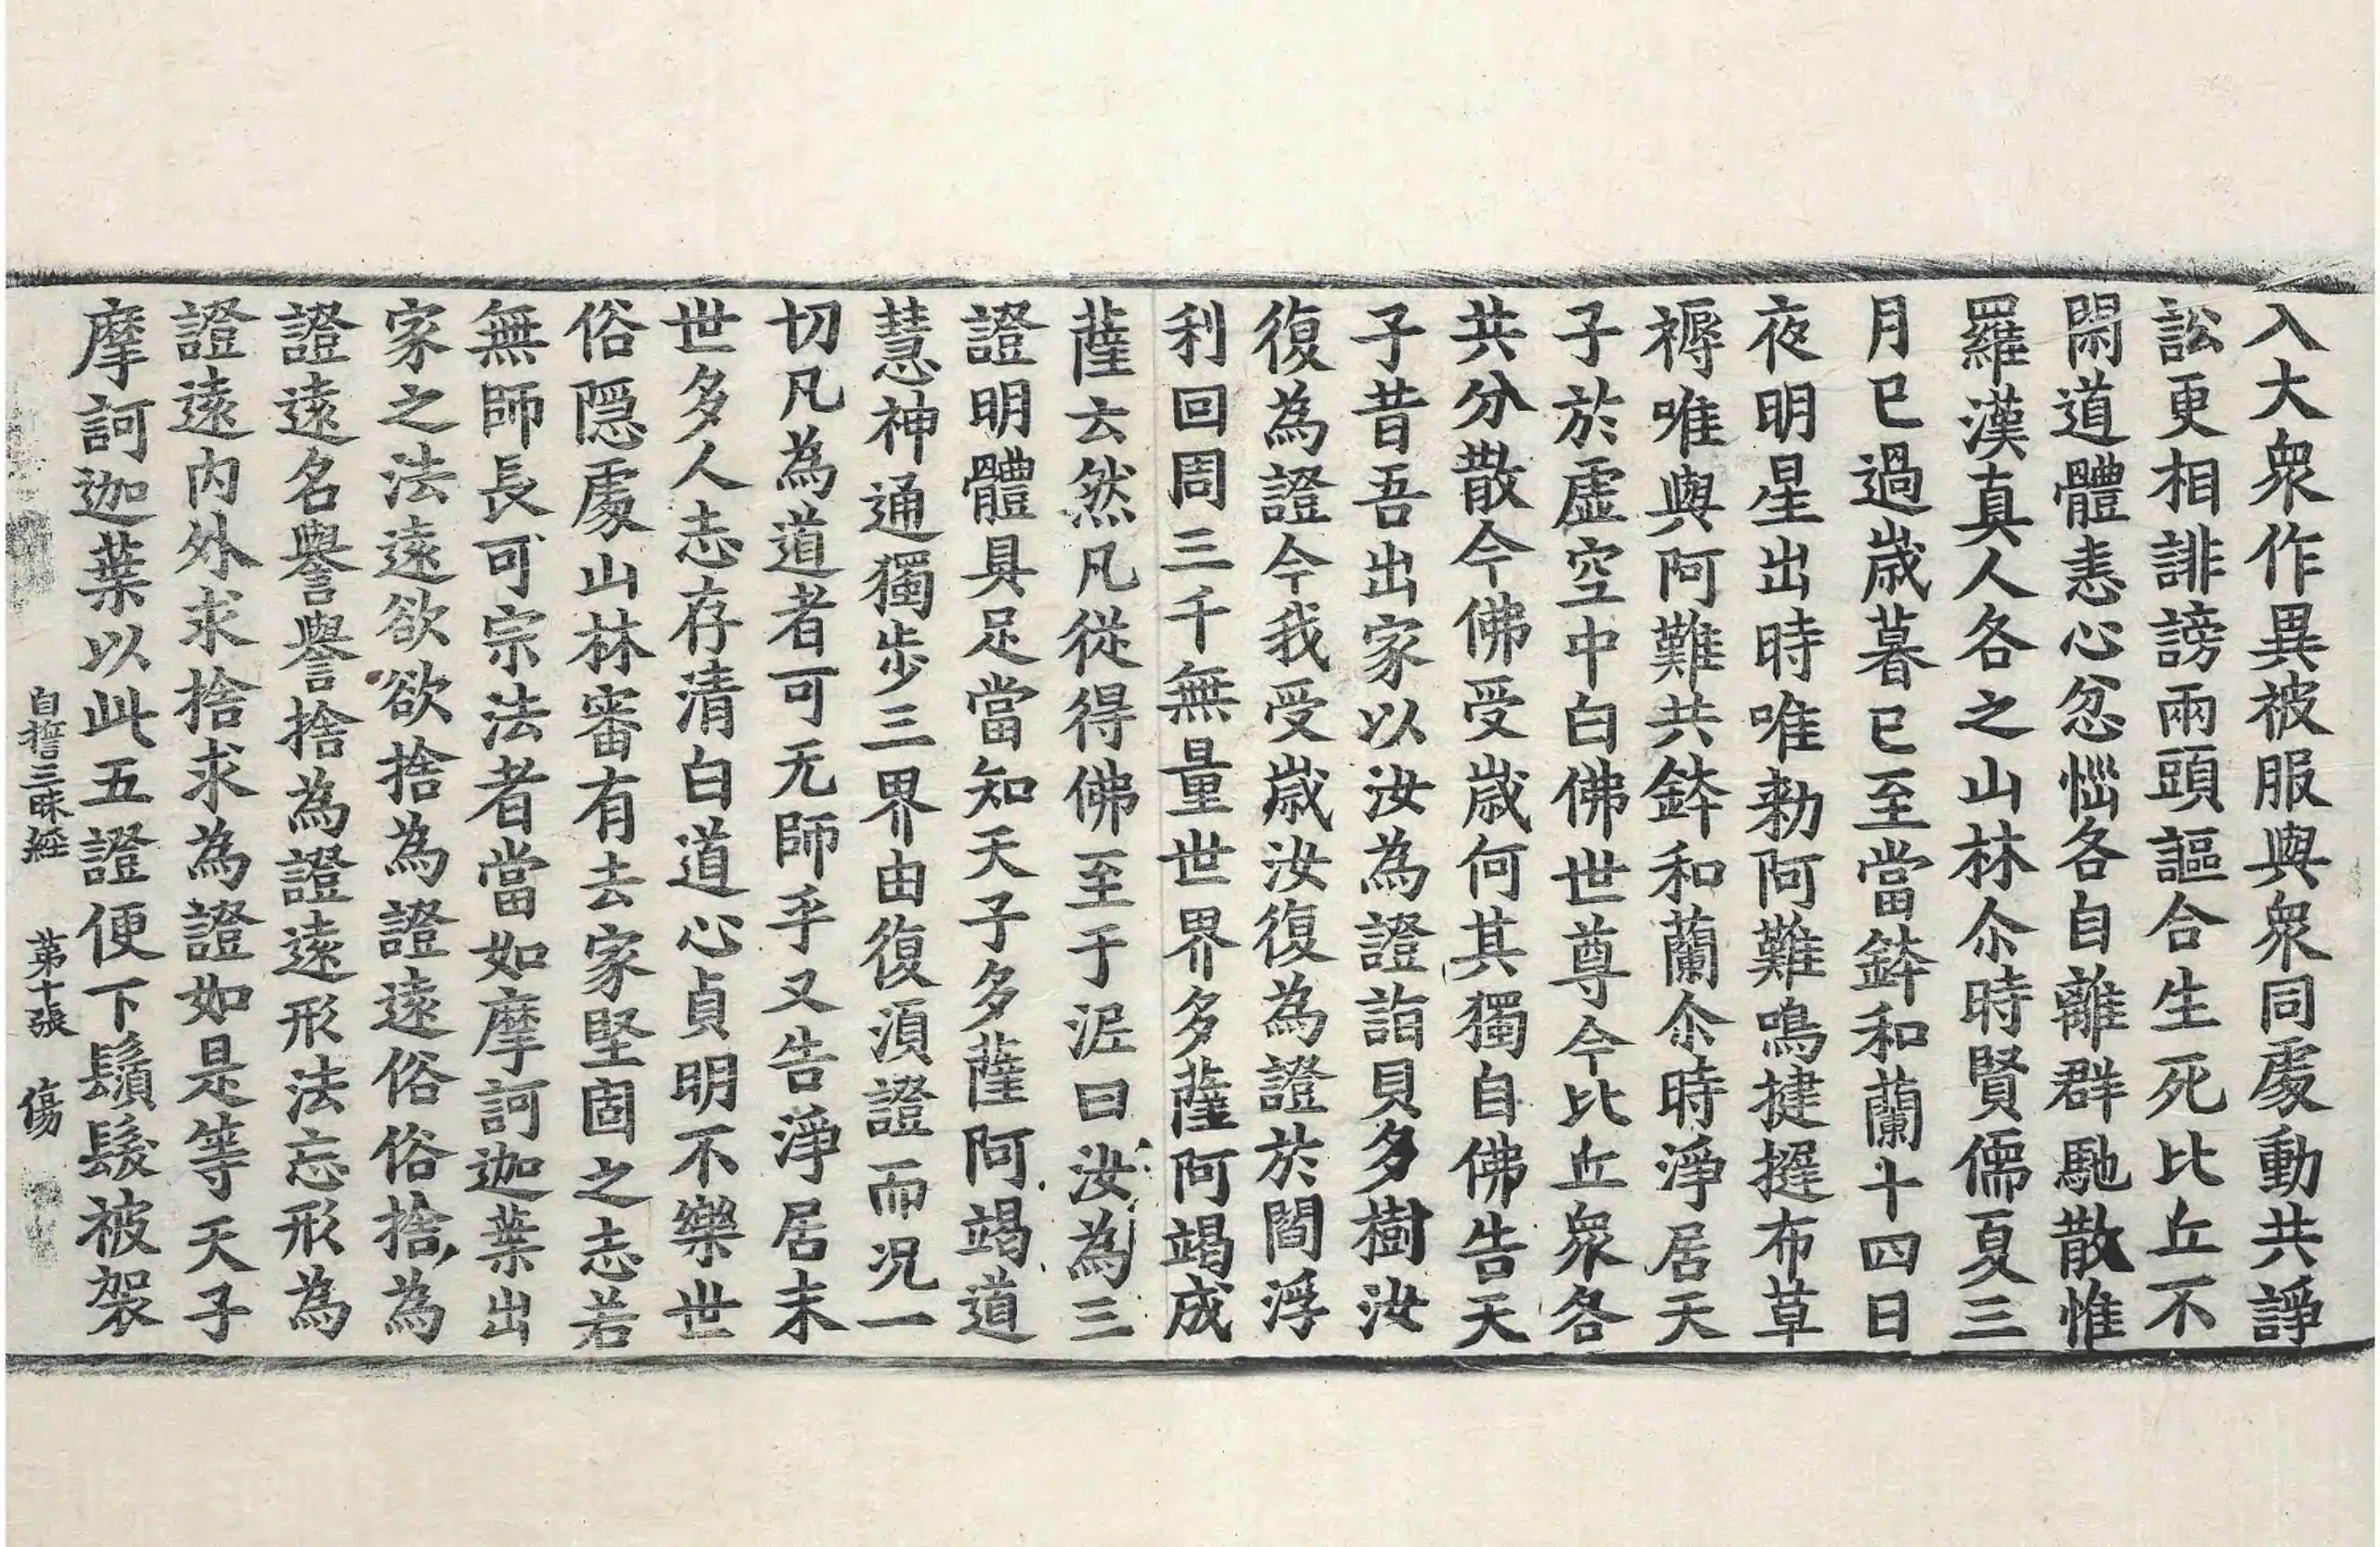 入大衆作異被服與衆同處動共諍
訟更相誹謗兩頭謳合生死比丘不
閑道體恚心忿惱各自離群馳散惟
羅漢真人各之山林尒時賢儒夏三
月已過歲暮已至當鉢和蘭十四日
夜明星出時唯勑阿難鳴揵搥布草
褥唯與阿難共鉢和蘭尒時淨居天
子於虛空中白佛世尊今比丘衆各
共分散今佛受歲何其獨自佛告天
子昔吾出家以汝為證詣貝多樹汝
復為證今我受歲汝復為證於閻浮
利回周三千無量世界多薩阿竭成
薩云然凡從得佛至于泥曰汝為三
證明體具足當知天子多薩阿竭道
慧神通獨步三界由復湏證而况一
切凡為道者可无師乎又告淨居末
世多人志存清白道心貞明不樂世
俗隱處山林審有去家堅固之志若
無師長可宗法者當如摩訶迦葉出
家之法遠欲欲捨為證遠俗俗捨為
證遠名譽譽捨為證遠形法忘形為
證遠内外求捨求為證如是等天子
摩訶迦葉以此五證便下鬚髮被袈
自誓三昧經　第十張　傷